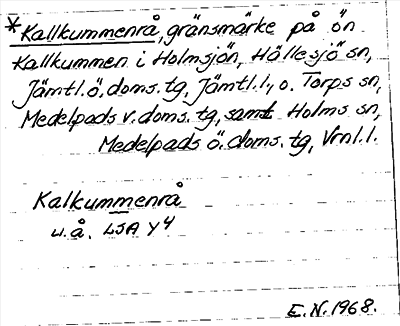 *Kallkummenrå, gränsmärke på ön
Kallkummen i Holmsjön, Hällesjö sn,
Jämtl.ö.doms.tg, Jämtl.l., o. Torps sn,
Medelpads v.doms.tg, samt Holms sn,
Medelpads ö.doms.tg, Vrnl.l.
Kalkummenrå
u.å. LSA Y4
E.N.1968.